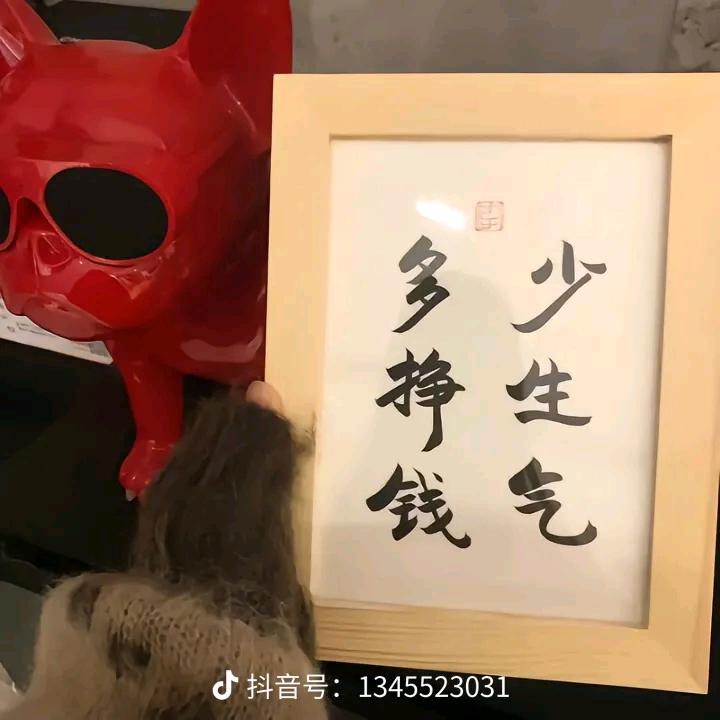 少生气
多挣钱
抖音号：1345523031